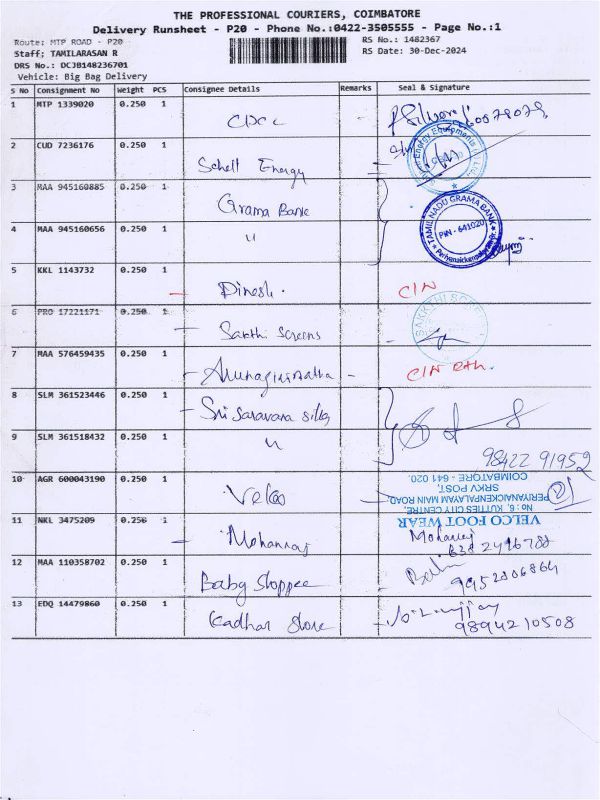 THE PROFESSIONAL COURIERS, COIMBATORE
Delivery Runsheet - P20 - Phone No.:0422-3505555 - Page No.:1
Route: MTP ROAD - P20
RS No.: 1482367
Staff; TAMILARASAN R
RS Date: 30-Dec-2024
DRS No.: DCJB148236701
Vehicle: Big Bag Delivery
S No Consignment No Weight PCS Consignee Details Remarks Seal & Signature
1 MTP 1339020 0.250 1
2 CUD 7236176 0.250 1 Schell Energy
3 MAA 945160885 0.250 1 Grama Bank
4 MAA 945160656 0.250 1 "
TAMIL NADU GRAMA BANK
PIN - 641020
5 KKL 1143732 0.250 1 Dinesh. C/N
6 PRO 17221171 0.250 1 Sakthi Screens
7 MAA 576459435 0.250 1 C/N
8 SLM 361523446 0.250 1 Sri Saravana silks
9 SLM 361518432 0.250 1 "
98422 91952
10 AGR 600043190 0.250 1
VELCO FOOT WEAR
No : 6, KUTTIES CITY CENTRE,
PERIYANAICKENPALAYAM MAIN ROAD
SRKV POST,
COIMBATORE - 641 020.
11 NKL 3475209 0.250 1 Mohanraj Mohanraj
12 MAA 110358702 0.250 1 Baby Shoppee
9952806864
13 EDQ 14479860 0.250 1 Kadhar Store
9894210508